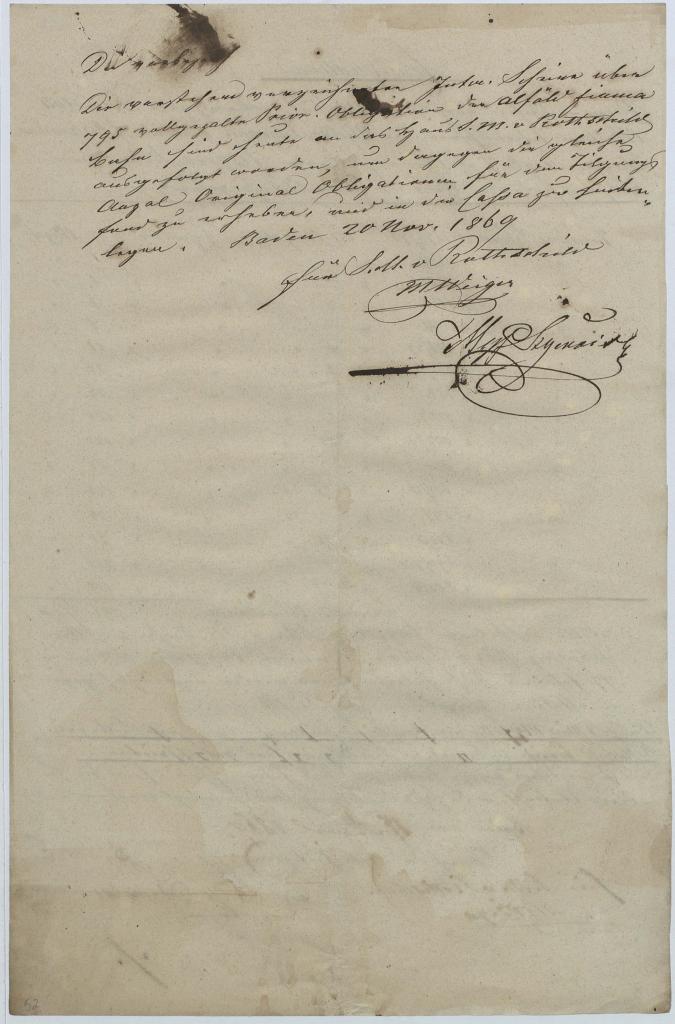 Die vorsteh
Die vorstehend verzeichneten Inter. Scheine über
795 vollgezalte Prior. Obligation der Alföld fiuma
bahn sind heute an das Haus S. M. v Rothschild
ausgefolgt worden, um dagegen die gleiche
Anzal Original Obligationen für den Tilgungs
fond zu erheben, und in die Cassa zu hinter
legen. Baden 20 Nov. 1869
für S. M. v Rothschild
52